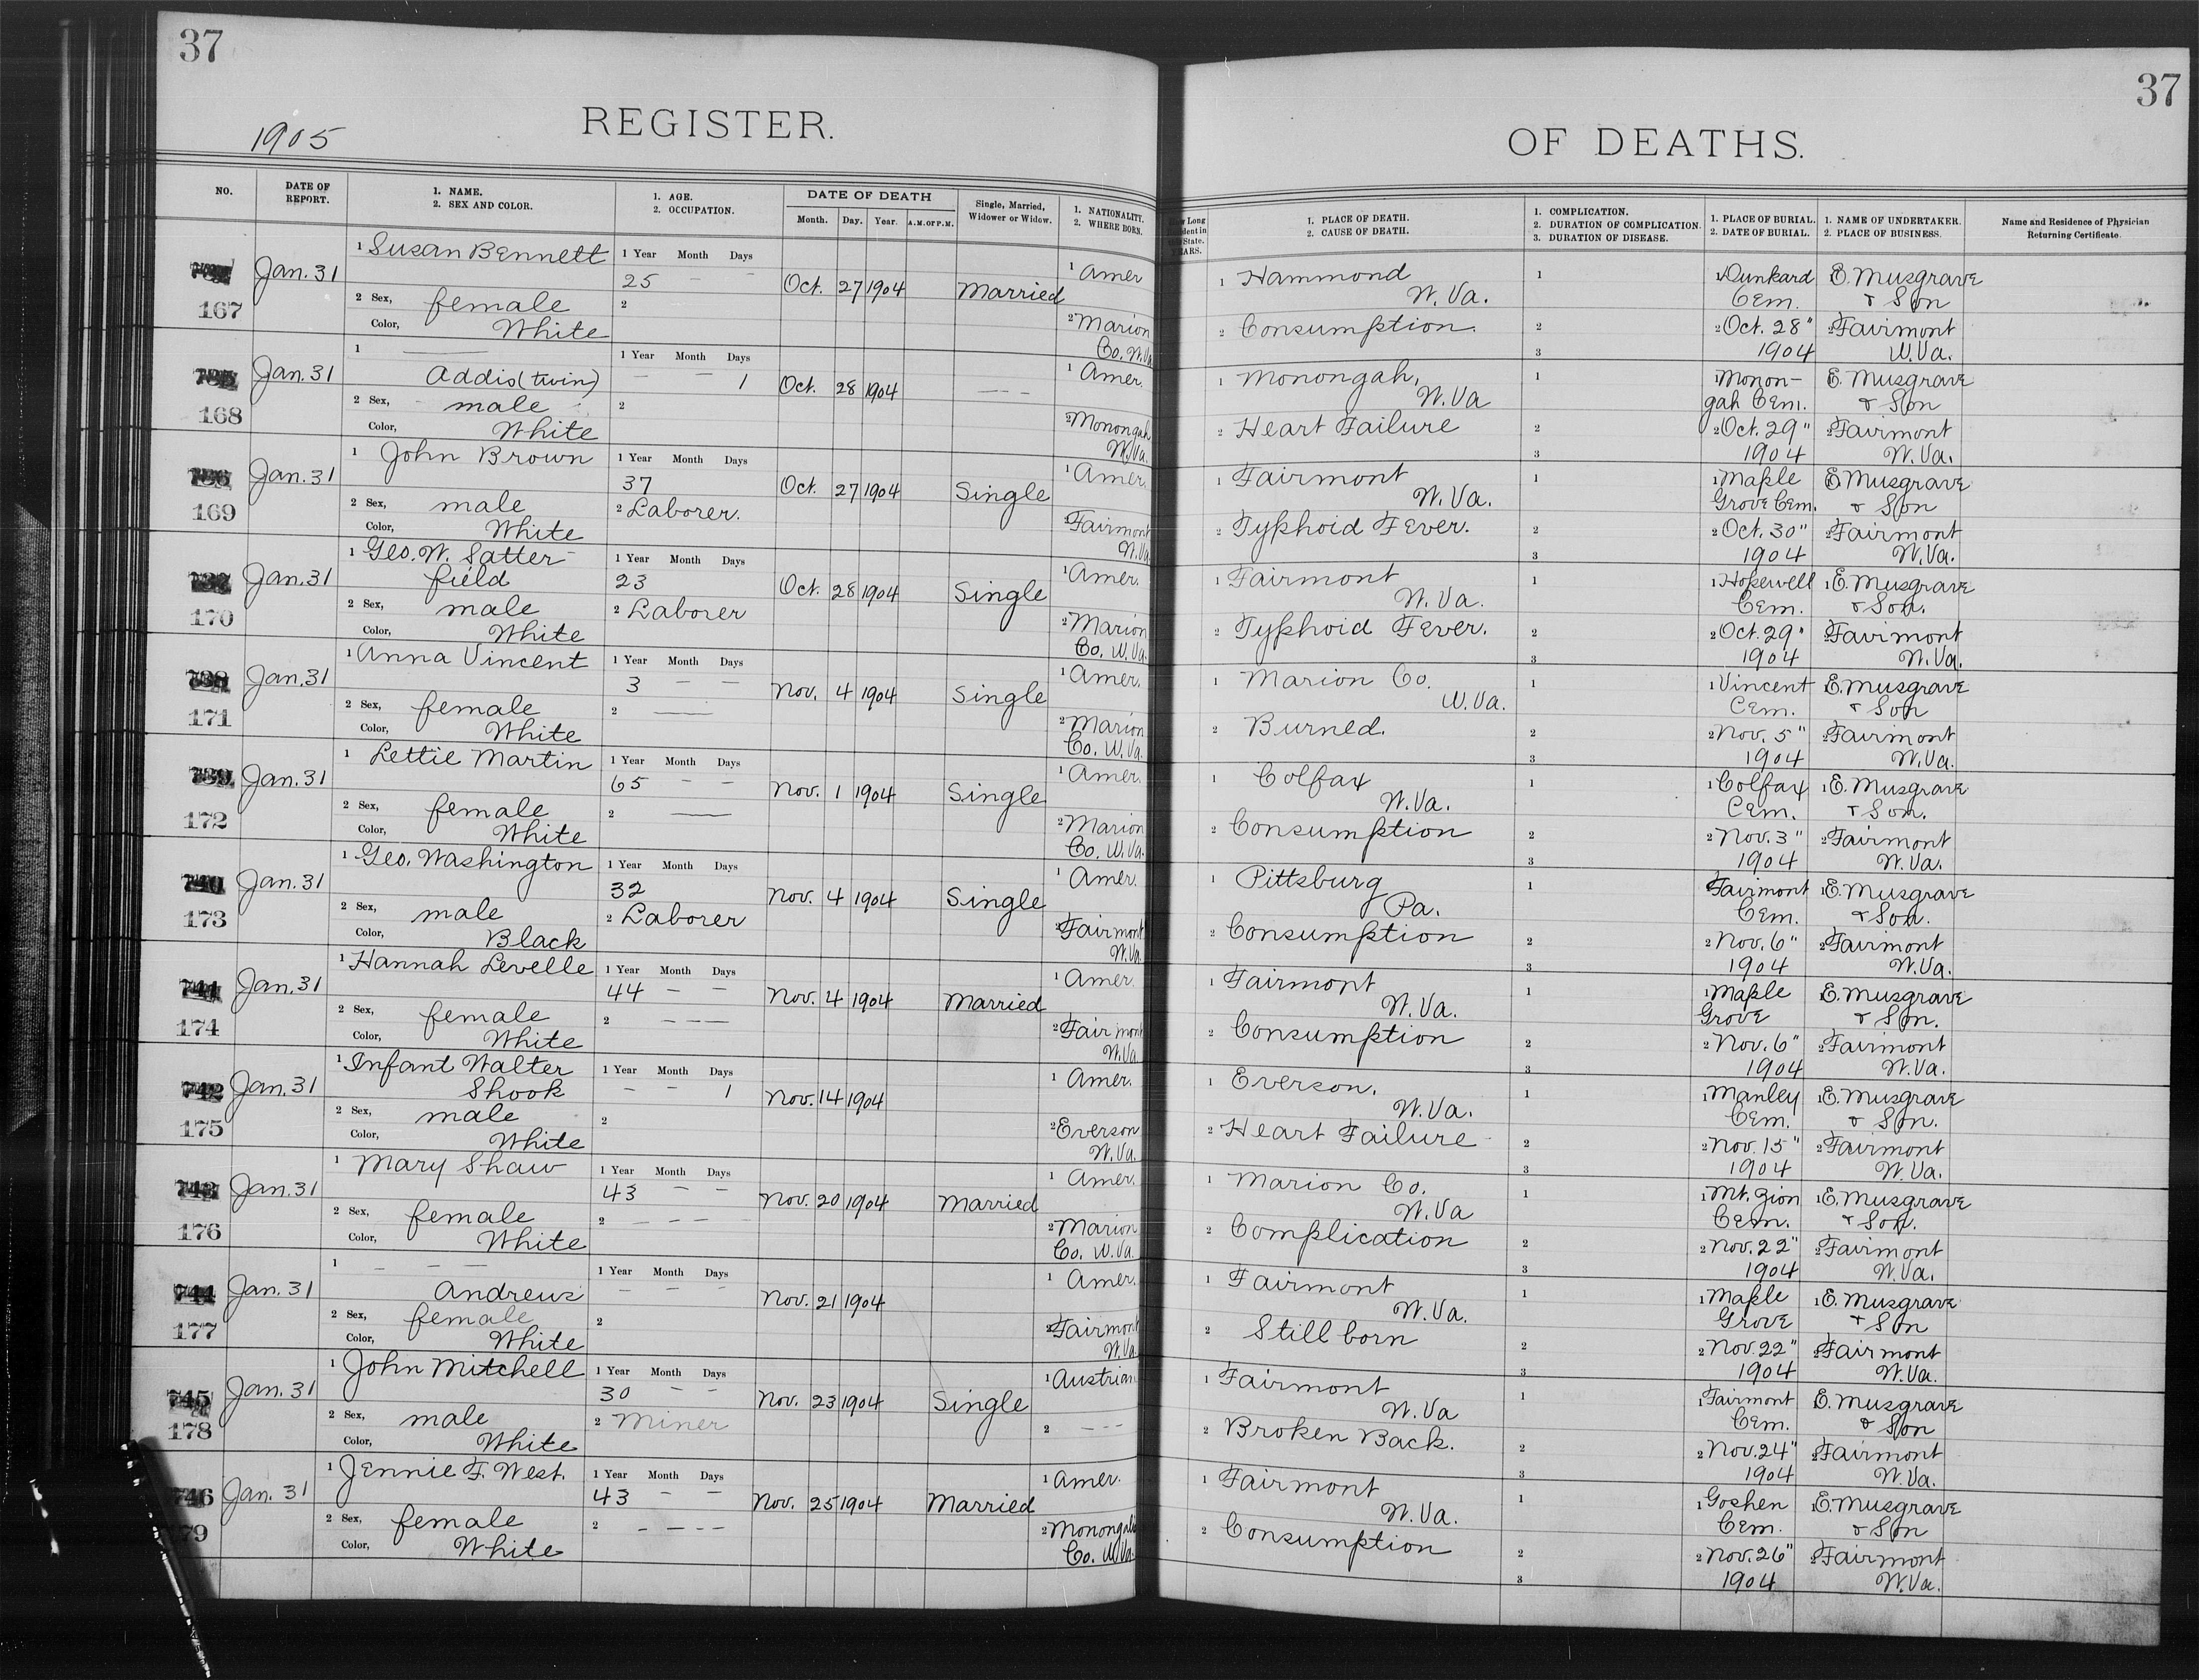 37
REGISTER.
1905
NO.
DATE OF REPORT.
1. NAME.
2. SEX AND COLOR.
1. AGE.
2. OCCUPATION.
DATE OF DEATH
Month. Day. Year. A.M. or P.M.
Single, Married,
Widower or Widow.
1. NATIONALITY.
2. WHERE BORN.
167 Jan. 31
1 Susan Bennett
2 Sex, female
Color, White
1 Year Month Days
25 - -
2
Oct. 27 1904 Married
1 Amer
2 Marion
Co. W.Va
168 Jan. 31
1 ——
Addis (twin)
2 Sex, male
Color, White
1 Year Month Days
- - 1
2
Oct. 28 1904 - - -
1 Amer.
2 Monongah
W.Va.
169 Jan. 31
1 John Brown
2 Sex, male
Color, White
1 Year Month Days
37
2 Laborer.
Oct. 27 1904 Single
1 Amer.
2 Fairmont
W.Va
170 Jan. 31
1 Geo. W. Satter-
field
2 Sex, male
Color, White
1 Year Month Days
23
2 Laborer
Oct. 28 1904 Single
1 Amer.
2 Marion
Co. W.Va.
738 171 Jan. 31
1 Anna Vincent
2 Sex, female
Color, White
1 Year Month Days
3 - -
2 ——
Nov. 4 1904 Single
1 Amer.
2 Marion
Co. W.Va.
739 172 Jan. 31
1 Lettie Martin
2 Sex, female
Color, White
1 Year Month Days
65 - -
2 ——
Nov. 1 1904 Single
1 Amer.
2 Marion
Co. W.Va.
740 173 Jan. 31
1 Geo. Washington
2 Sex, male
Color, Black
1 Year Month Days
32
2 Laborer
Nov. 4 1904 Single
1 Amer.
2 Fairmont
W.Va.
741 174 Jan. 31
1 Hannah Levelle
2 Sex, female
Color, White
1 Year Month Days
44 - -
2 - - -
Nov. 4 1904 Married
1 Amer.
2 Fairmont
W.Va.
742 175 Jan. 31
1 Infant Walter
Shook
2 Sex, male
Color, White
1 Year Month Days
- - 1
2
Nov. 14 1904
1 Amer.
2 Everson
W.Va.
743 176 Jan. 31
1 Mary Shaw
2 Sex, female
Color, White
1 Year Month Days
43 - -
2 - - - -
Nov. 20 1904 Married
1 Amer.
2 Marion
Co. W.Va.
744 177 Jan. 31
1 - - -
Andrews
2 Sex, female
Color, White
1 Year Month Days
- - -
2
Nov. 21 1904
1 Amer.
2 Fairmont
W.Va
745 178 Jan. 31
1 John Mitchell
2 Sex, male
Color, White
1 Year Month Days
30 - -
2 Miner
Nov. 23 1904 Single
1 Austrian
2 - - -
746 79 Jan. 31
1 Jennie F. West.
2 Sex, female
Color, White
1 Year Month Days
43 - -
2 - - - -
Nov. 25 1904 Married
1 Amer.
2 Monongalia
Co. W.Va.
37
OF DEATHS.
1. PLACE OF DEATH.
2. CAUSE OF DEATH.
1. COMPLICATION.
2. DURATION OF COMPLICATION.
3. DURATION OF DISEASE.
1. PLACE OF BURIAL.
2. DATE OF BURIAL.
1. NAME OF UNDERTAKER.
2. PLACE OF BUSINESS.
Name and Residence of Physician
Returning Certificate.
1 Hammond
W. Va.
2 Consumption.
1
2
3
1 Dunkard
Cem.
2 Oct. 28"
1904
E. Musgrave
& Son
2 Fairmont
W.Va.
1 Monongah,
W.Va
2 Heart Failure
1
2
3
1 Monon-
gah Cem.
2 Oct. 29"
1904
E. Musgrave
& Son
2 Fairmont
W.Va.
1 Fairmont
W. Va.
2 Typhoid Fever.
1
2
3
1 Maple
Grove Cem.
2 Oct. 30"
1904
E Musgrave
& Son
2 Fairmont
W.Va.
1 Fairmont
W. Va.
2 Typhoid Fever.
1
2
3
1 Hopewell
Cem.
2 Oct. 29"
1904
1 E. Musgrave
& Son.
2 Fairmont
W.Va.
1 Marion Co.
W.Va.
2 Burned.
1
2
3
1 Vincent
Cem.
2 Nov. 5"
1904
1 E. Musgrave
& Son
2 Fairmont
W.Va.
1 Colfax
W.Va.
2 Consumption
1
2
3
1 Colfax
Cem.
2 Nov. 3"
1904
1 E. Musgrave
& Son.
2 Fairmont
W.Va.
1 Pittsburg
Pa.
2 Consumption
1
2
3
Fairmont
Cem.
2 Nov. 6"
1904
1 E. Musgrave
& Son.
2 Fairmont
W.Va.
1 Fairmont
W.Va.
2 Consumption
1
2
3
1 Maple
Grove
2 Nov. 6"
1904
E. Musgrave
& Son.
2 Fairmont
W.Va.
1 Everson.
W.Va.
2 Heart Failure
1
2
3
1 Manley
Cem.
2 Nov. 15"
1904
1 E. Musgrave
& Son.
2 Fairmont
W.Va.
1 Marion Co.
W.Va
2 Complication
1
2
3
1 Mt. Zion
Cem.
2 Nov. 22"
1904
1 E. Musgrave
& Son.
2 Fairmont
W.Va.
1 Fairmont
W.Va.
2 Still born
1
2
3
1 Maple
Grove
2 Nov. 22"
1904
1 E. Musgrave
& Son
2 Fairmont
W.Va.
1 Fairmont
W.Va
2 Broken Back.
1
2
3
1 Fairmont
Cem.
2 Nov. 24"
1904
E. Musgrave
& Son
2 Fairmont
W.Va.
1 Fairmont
W.Va.
2 Consumption
1
2
3
1 Goshen
Cem.
2 Nov. 26"
1904
E. Musgrave
& Son
2 Fairmont
W.Va.